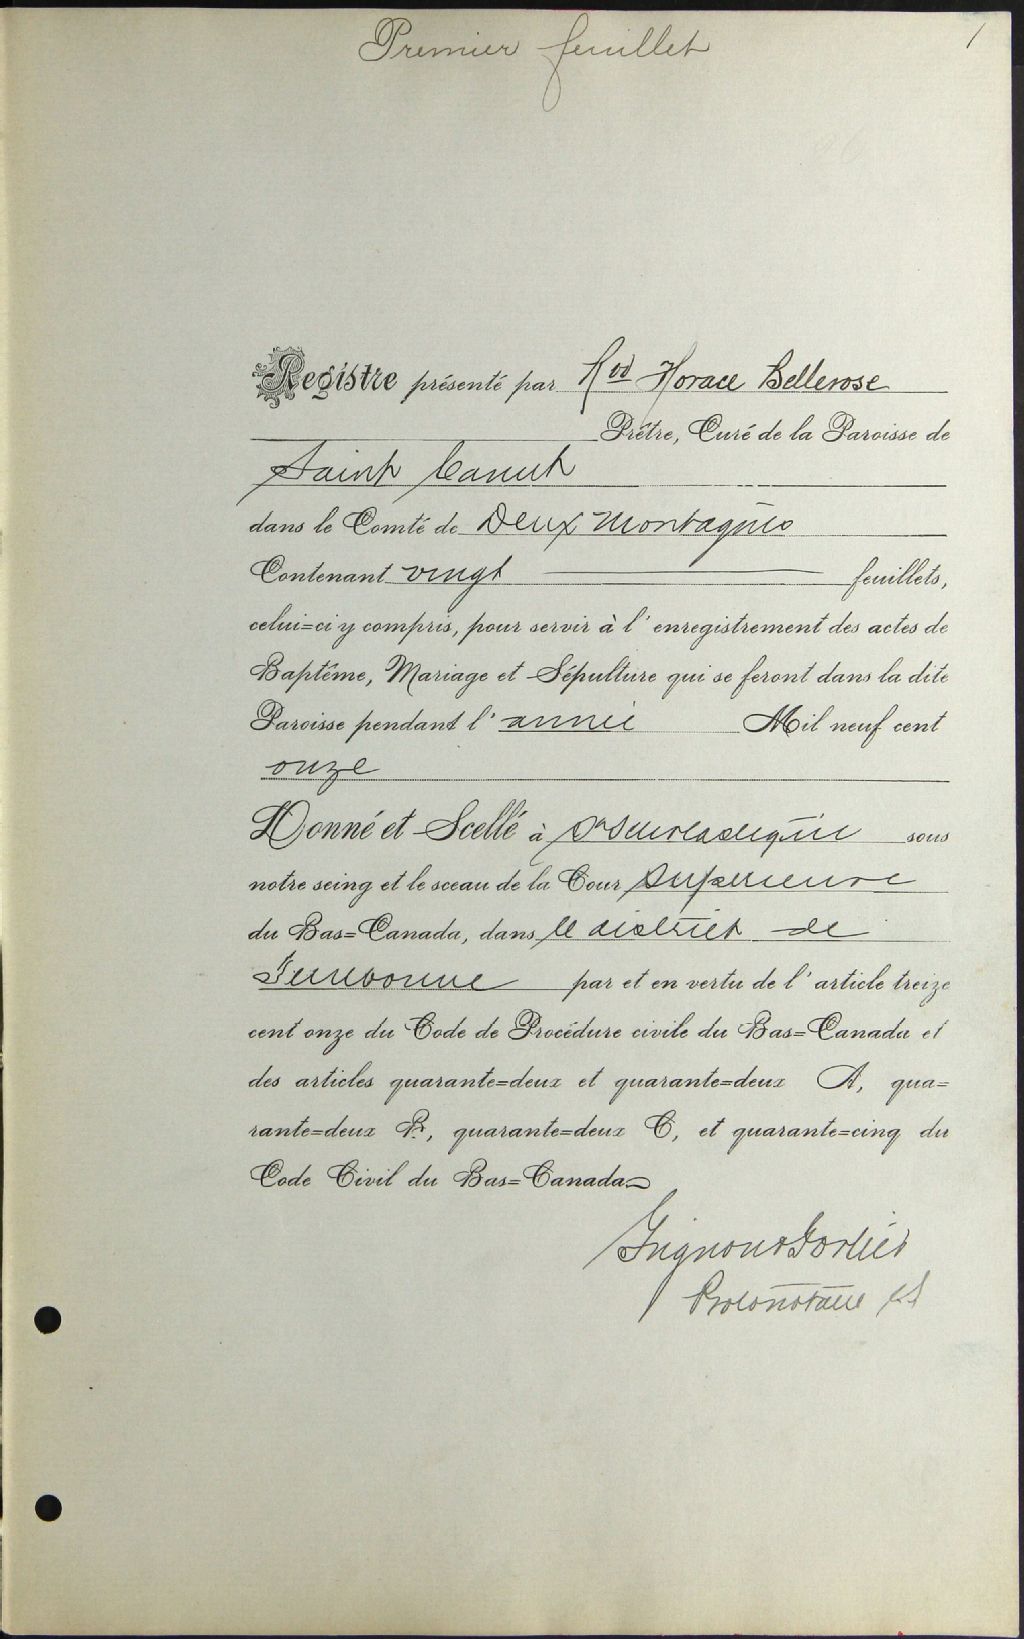 Premier feuillet
1
Registre présenté par Rvd Horace Bellerose
Prêtre, Curé de la Paroisse de
Saint Canut
dans le Comté de Deux Montagnes
Contenant vingt feuillets,
celui=ci y compris, pour servir à l'enregistrement des actes de
Baptême, Mariage et Sépulture qui se feront dans la dite
Paroisse pendant l'année Mil neuf cent
onze
Donné et Scellé à Ste Scholastique sous
notre seing et le sceau de la Cour Supérieure
du Bas=Canada, dans le district de
Terrebonne par et en vertu de l'article treize
cent onze du Code de Procédure civile du Bas=Canada et
des articles quarante=deux et quarante=deux A, qua=
rante=deux B, quarante=deux C, et quarante=cinq du
Code Civil du Bas=Canada
Grignon & Fortier
Protonotaire CS